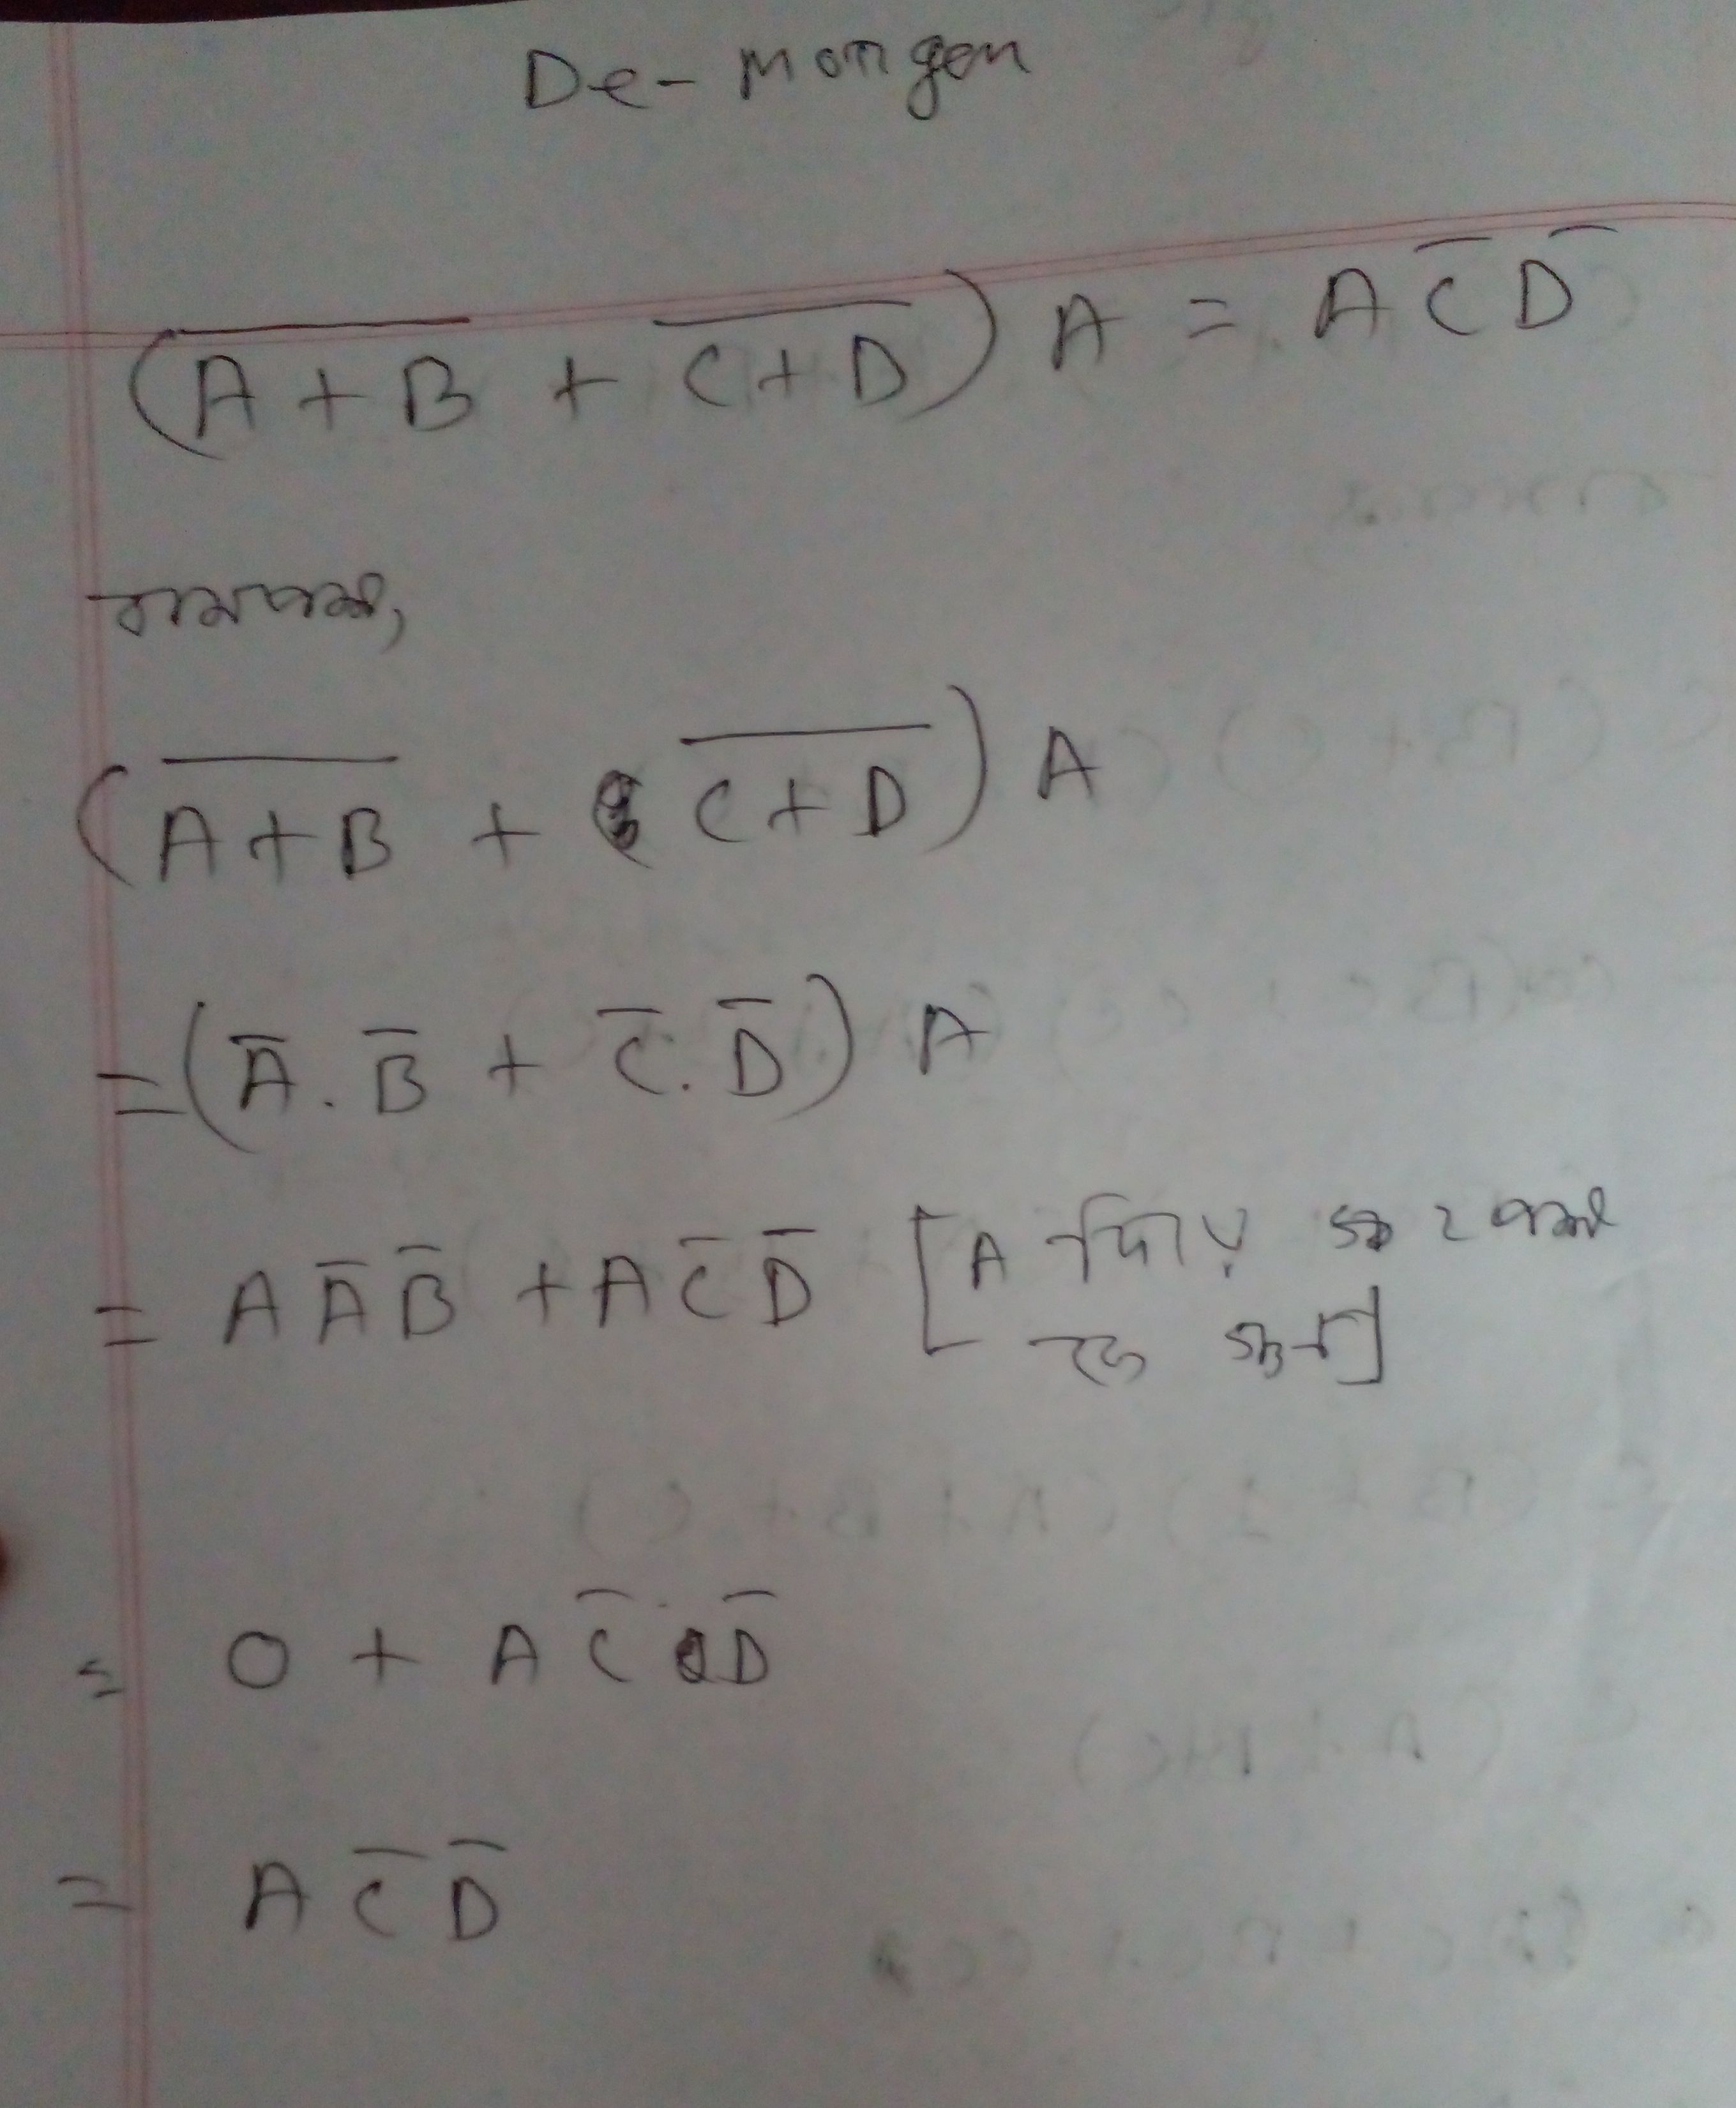 De-morgan
(A̅+̅B̅ + C̅+̅D̅) A = A C̅ D̅
বামপক্ষ,
(A̅+̅B̅ + C̅+̅D̅) A
= (A̅ . B̅ + C̅ . D̅) A
= A A̅ B̅ + A C̅ D̅ [A দিয়ে
= 0 + A C̅ D̅
= A C̅ D̅